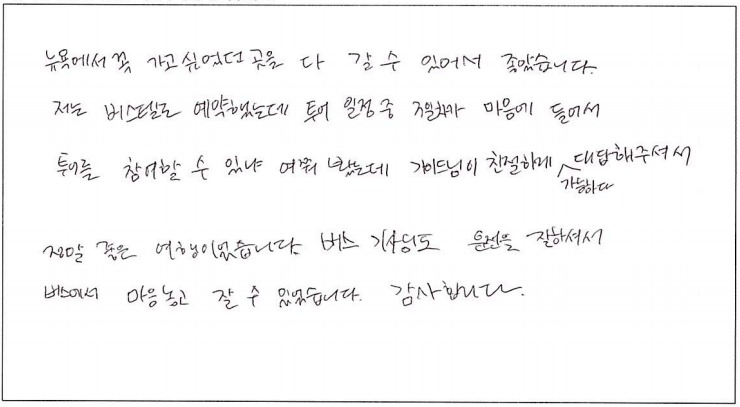 뉴욕에서 꼭 가고싶었던 곳을 다 갈 수 있어서 좋았습니다.
저는 버스텔로 예약했는데 투어 일정 중 3일차가 마음에 들어서
투어를 참여할 수 있냐 여쭤 봤는데 가이드님이 친절하게 가능하다 대답해주셔서
정말 좋은 여행이었습니다. 버스 기사님도 운전을 잘하셔서
버스에서 마음놓고 잘 수 있었습니다. 감사합니다.